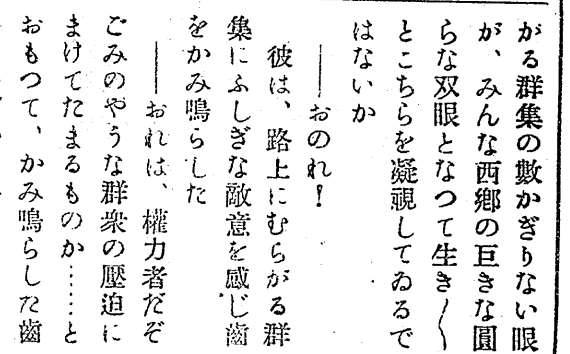 がる群集の數かぎりない眼
が、みんな西鄕の巨きな圓
らな双眼となつて生き〱
とこちらを凝視してゐるで
はないか
――おのれ！
彼は、路上にむらがる群
集にふしぎな敵意を感じ齒
をかみ鳴らした
――おれは、權力者だぞ
ごみのやうな群衆の壓迫に
まけてたまるものか……と
おもつて、かみ鳴らした齒